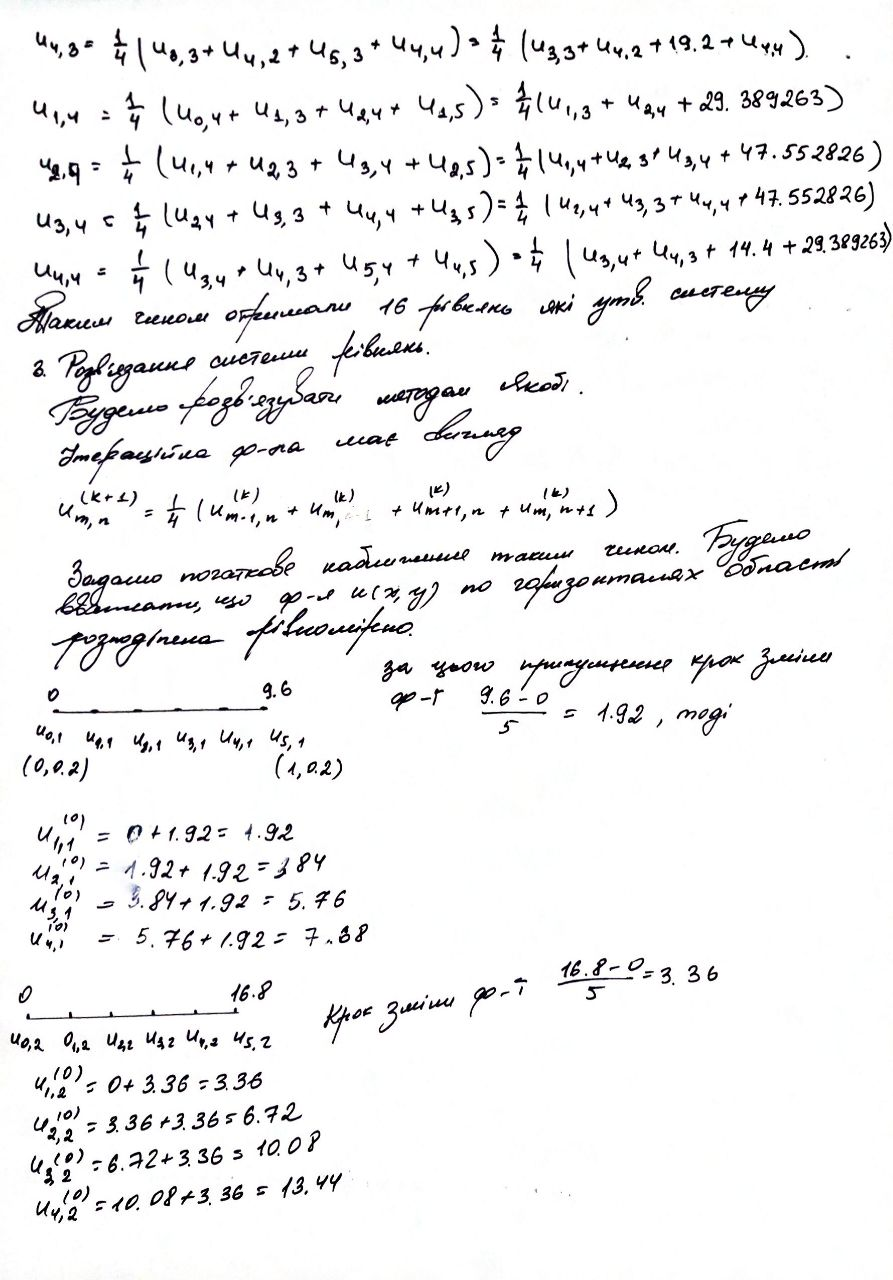 u₄,₃ = 1/4 (u₃,₃ + u₄,₂ + u₅,₃ + u₄,₄) = 1/4 (u₃,₃ + u₄,₂ + 19.2 + u₄,₄).
u₁,₄ = 1/4 (u₀,₄ + u₁,₃ + u₂,₄ + u₁,₅) = 1/4 (u₁,₃ + u₂,₄ + 29.389263)
u₂,₄ = 1/4 (u₁,₄ + u₂,₃ + u₃,₄ + u₂,₅) = 1/4 (u₁,₄ + u₂,₃ + u₃,₄ + 47.552826)
u₃,₄ = 1/4 (u₂,₄ + u₃,₃ + u₄,₄ + u₃,₅) = 1/4 (u₂,₄ + u₃,₃ + u₄,₄ + 47.552826)
u₄,₄ = 1/4 (u₃,₄ + u₄,₃ + u₅,₄ + u₄,₅) = 1/4 (u₃,₄ + u₄,₃ + 14.4 + 29.389263)
Таким чином отримали 16 рівнянь які утв. систему
3. Розв'язання системи рівнянь.
Будемо розв'язувати методом Якобі.
Ітераційна ф-ла має вигляд
u_{m,n}^{(k+1)} = 1/4 (u_{m-1,n}^{(k)} + u_{m,n-1}^{(k)} + u_{m+1,n}^{(k)} + u_{m,n+1}^{(k)})
Задамо початкове наближення таким чином. Будемо
вважати, що ф-я u(x,y) по горизонталях області
розподілена рівномірно.
за цього припущення крок зміни
ф-ї (9.6 - 0)/5 = 1.92, тоді
0 9.6
u₀,₁ u₁,₁ u₂,₁ u₃,₁ u₄,₁ u₅,₁
(0,0.2) (1,0.2)
u₁,₁⁽⁰⁾ = 0 + 1.92 = 1.92
u₂,₁⁽⁰⁾ = 1.92 + 1.92 = 3.84
u₃,₁⁽⁰⁾ = 3.84 + 1.92 = 5.76
u₄,₁⁽⁰⁾ = 5.76 + 1.92 = 7.38
0 16.8 Крок зміни ф-ї (16.8 - 0)/5 = 3.36
u₀,₂ 0₁,₂ u₂,₂ u₃,₂ u₄,₂ u₅,₂
u₁,₂⁽⁰⁾ = 0 + 3.36 = 3.36
u₂,₂⁽⁰⁾ = 3.36 + 3.36 = 6.72
u₃,₂⁽⁰⁾ = 6.72 + 3.36 = 10.08
u₄,₂⁽⁰⁾ = 10.08 + 3.36 = 13.44